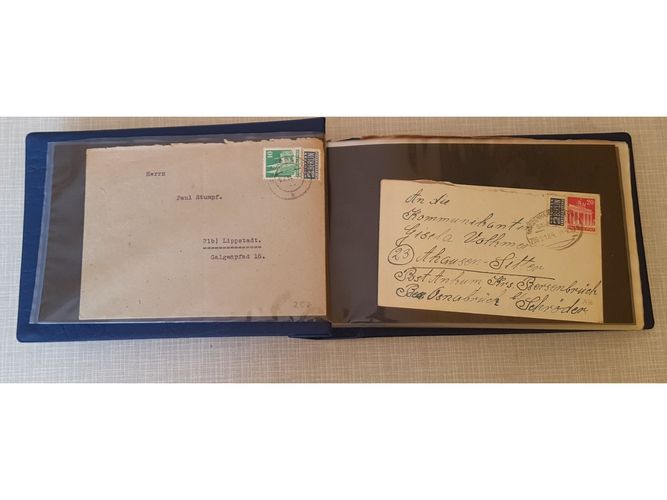 Herrn
Paul Stumpf.
21b) Lippstadt.
Galgenpfad 16.
10
NOTOPFER
2 BERLIN
An die
Kommunikantin
Gisela Vollmer
23 Ahausen-Sitter
Post Ankum Krs. Bersenbrück
Bez. Osnabrück b/ Schröder
20